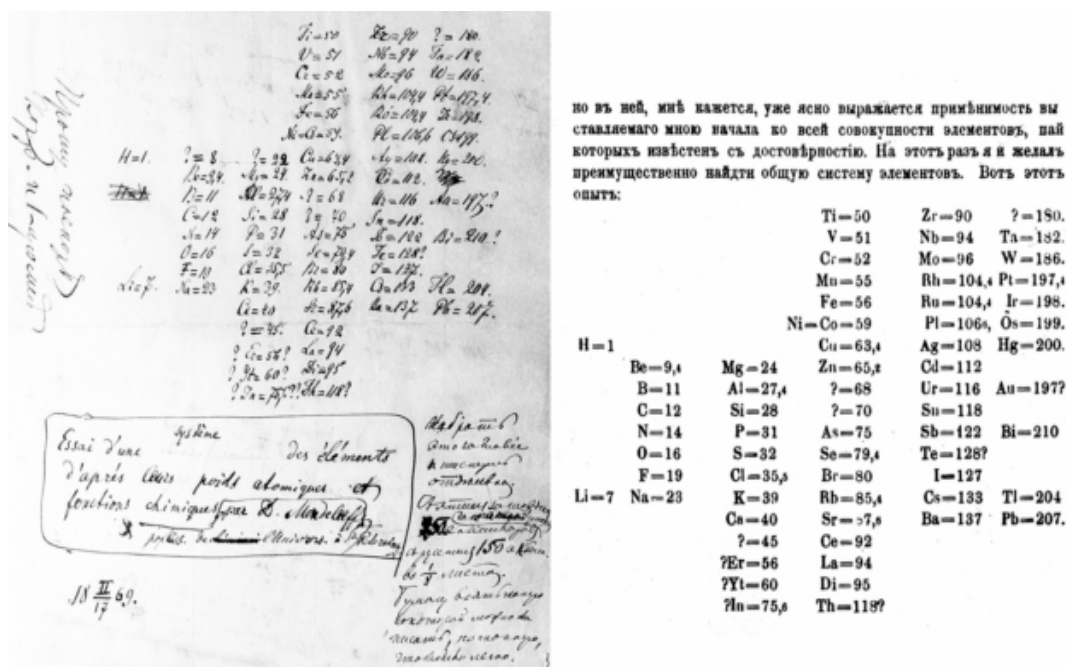 Ti=50 Zr=90 ?=180.
V=51 Nb=94 Ta=182
Cr=52 Mo=96 W=186.
Mn=55 Rh=104,4 Pt=197,4.
Fe=56 Ru=104,4 Ir=198.
Ni=Co=59. Pl=106,6 Os=199.
H=1. ?=8 ?=22 Cu=63,4 Ag=108. Hg=200.
Be=9,4. Mg=24. Zn=65,2 Cd=112.
B=11 Al=27,4 ?=68 Ur=116 Au=197?
C=12 Si=28 ?=70 Sn=118.
N=14 P=31 As=75 Sb=122 Bi=210?
O=16 S=32 Se=79,4 Te=128?
F=19 Cl=35,5 Br=80 I=127.
Li=7. Na=23 K=39. Rb=85,4 Cs=133 Tl=204.
Ca=40 Sr=87,6 Ba=137 Pb=207.
?=45. Ce=92
?Er=56? La=94
?Yt=60? Di=95
?In=75,6? Th=118?
système
Essai d'une des éléments
d'après leurs poids atomiques et
fonctions chimiques par D. Mendeleeff
18 II/17 69.
но въ ней, мнѣ кажется, уже ясно выражается примѣнимость вы
ставляемаго мною начала ко всей совокупности элементовъ, пай
которыхъ извѣстенъ съ достовѣрностію. На этотъ разъ я и желалъ
преимущественно найдти общую систему элементовъ. Вотъ этотъ
опытъ:
Ti=50 Zr=90 ?=180.
V=51 Nb=94 Ta=182.
Cr=52 Mo=96 W=186.
Mn=55 Rh=104,4 Pt=197,4
Fe=56 Ru=104,4 Ir=198.
Ni=Co=59 Pl=106,6, Os=199.
H=1 Cu=63,4 Ag=108 Hg=200.
Be=9,4 Mg=24 Zn=65,2 Cd=112
B=11 Al=27,4 ?=68 Ur=116 Au=197?
C=12 Si=28 ?=70 Sn=118
N=14 P=31 As=75 Sb=122 Bi=210
O=16 S=32 Se=79,4 Te=128?
F=19 Cl=35,5 Br=80 I=127
Li=7 Na=23 K=39 Rb=85,4 Cs=133 Tl=204
Ca=40 Sr=87,6 Ba=137 Pb=207.
?=45 Ce=92
?Er=56 La=94
?Yt=60 Di=95
?In=75,6 Th=118?